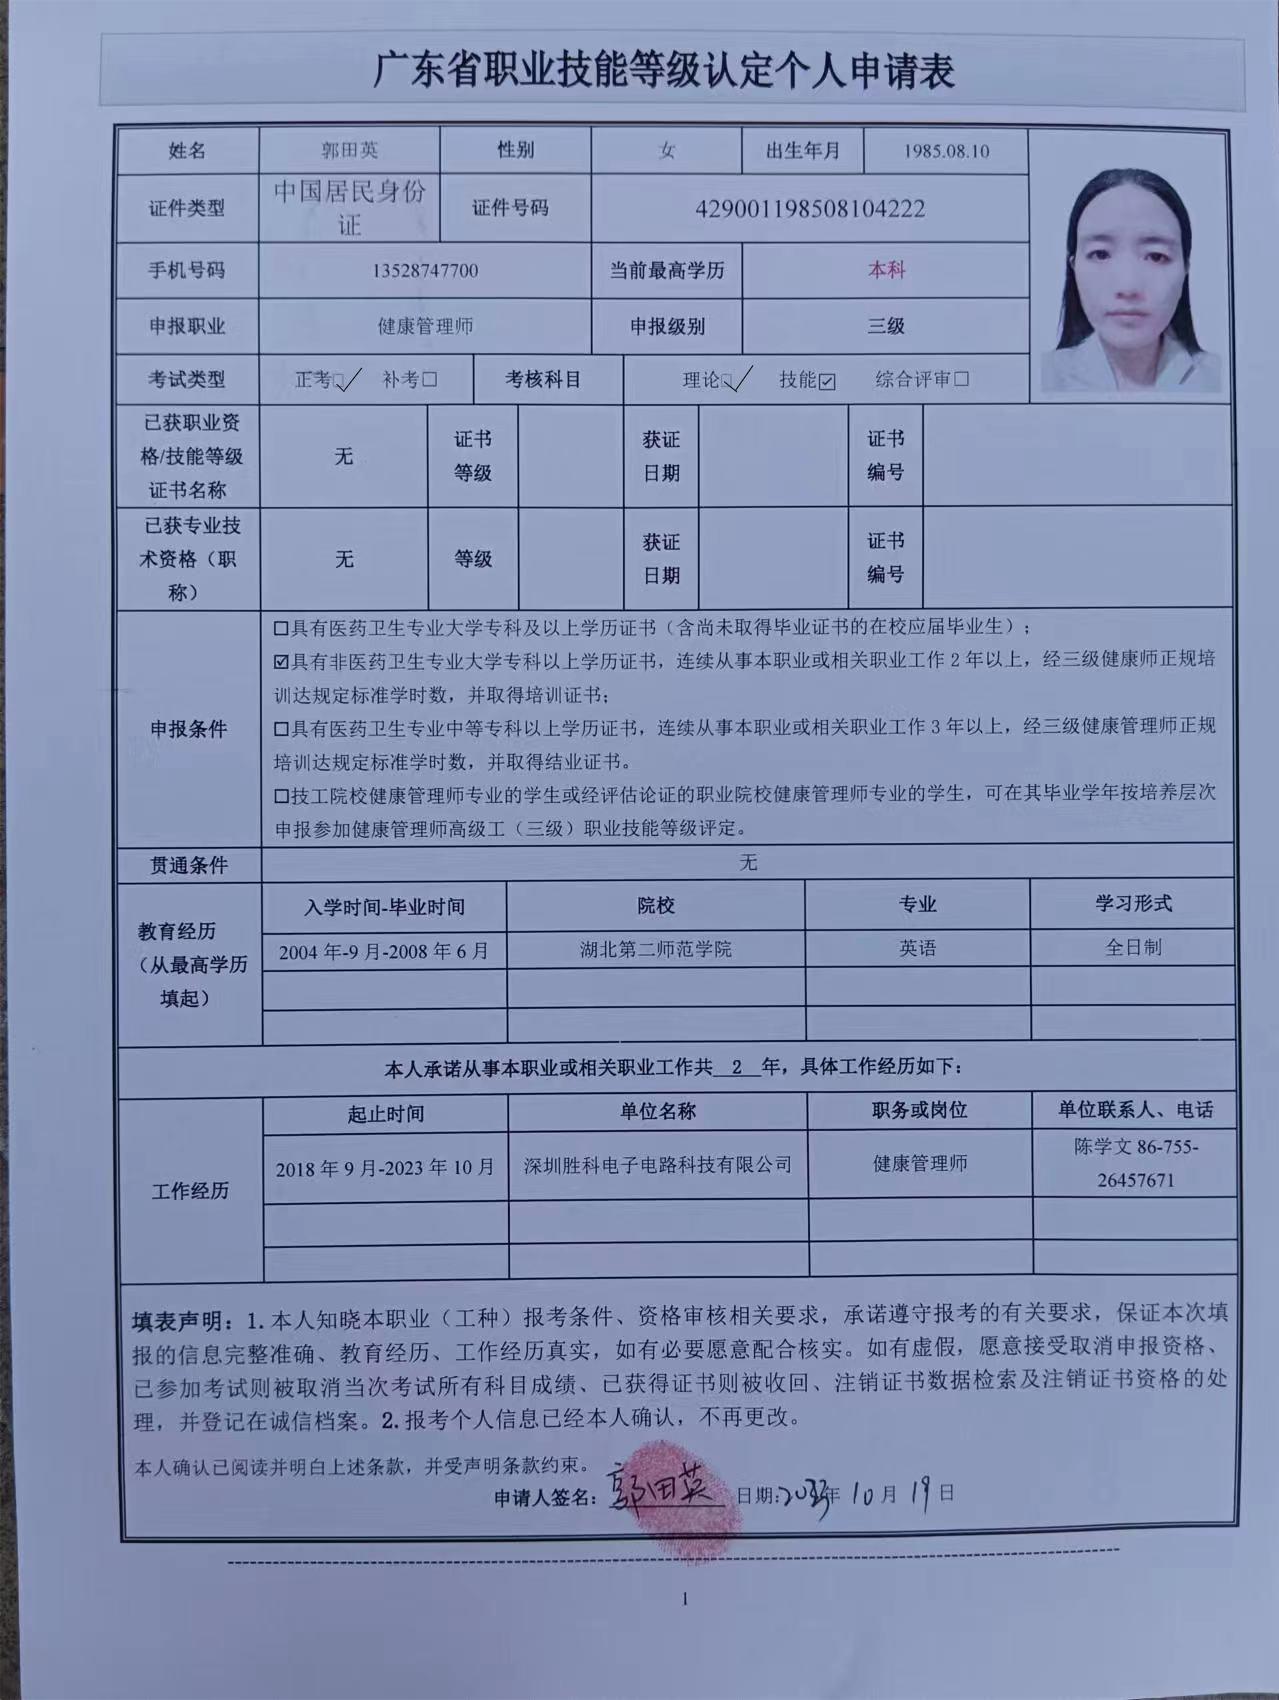 广东省职业技能等级认定个人申请表
姓名 郭田英 性别 女 出生年月 1985.08.10
证件类型 中国居民身份证 证件号码 429001198508104222
手机号码 13528747700 当前最高学历 本科
申报职业 健康管理师 申报级别 三级
考试类型 正考☑ 补考☐ 考核科目 理论☑ 技能☑ 综合评审☐
已获职业资格/技能等级证书名称 无 证书等级 获证日期 证书编号
已获专业技术资格（职称） 无 等级 获证日期 证书编号
申报条件
☐具有医药卫生专业大学专科及以上学历证书（含尚未取得毕业证书的在校应届毕业生）；
☑具有非医药卫生专业大学专科以上学历证书，连续从事本职业或相关职业工作 2 年以上，经三级健康师正规培
训达规定标准学时数，并取得培训证书；
☐具有医药卫生专业中等专科以上学历证书，连续从事本职业或相关职业工作 3 年以上，经三级健康管理师正规
培训达规定标准学时数，并取得结业证书。
☐技工院校健康管理师专业的学生或经评估论证的职业院校健康管理师专业的学生，可在其毕业学年按培养层次
申报参加健康管理师高级工（三级）职业技能等级评定。
贯通条件 无
教育经历（从最高学历填起） 入学时间-毕业时间 院校 专业 学习形式
2004 年-9 月-2008 年 6 月 湖北第二师范学院 英语 全日制
本人承诺从事本职业或相关职业工作共 2 年，具体工作经历如下：
工作经历 起止时间 单位名称 职务或岗位 单位联系人、电话
2018 年 9 月-2023 年 10 月 深圳胜科电子电路科技有限公司 健康管理师 陈学文 86-755-26457671
填表声明：1.本人知晓本职业（工种）报考条件、资格审核相关要求，承诺遵守报考的有关要求，保证本次填
报的信息完整准确、教育经历、工作经历真实，如有必要愿意配合核实。如有虚假，愿意接受取消申报资格、
已参加考试则被取消当次考试所有科目成绩、已获得证书则被收回、注销证书数据检索及注销证书资格的处
理，并登记在诚信档案。2.报考个人信息已经本人确认，不再更改。
本人确认已阅读并明白上述条款，并受声明条款约束。
申请人签名：郭田英 日期：2023年 10 月 19 日
1